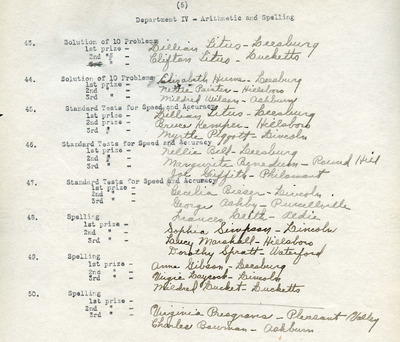 (5)
Department IV - Arithmetic and Spelling
43. Solution of 10 Problems
1st prize - Lillian Titus - Leesburg
2nd " - Clifton Titus - Ducketts
3rd " -
44. Solution of 10 Problems
1st prize - Elizabeth Hume - Leesburg
2nd " - Nettie Painter - Hillsboro
3rd " - Mildred Wilson - Ashburn
45. Standard Tests for Speed and Accuracy
1st prize - Lillian Titus - Leesburg
2nd " - Bruce Kemper - Hillsboro
3rd " - Myrtle Piggott - Lincoln
46. Standard Tests for Speed and Accuracy
1st prize - Nellie - Leesburg
2nd " - Marguerite - Round Hill
3rd " - Joe Griffith - Philomont
47. Standard Tests for Speed and Accuracy
1st prize - Cecilia - Lincoln
2nd " - George Ashby - Purcellville
3rd " - Frances - Aldie
48. Spelling
1st prize - Sophia Simpson - Lincoln
2nd " - Lucy Marshall - Hillsboro
3rd " - Dorothy Spratt - Waterford
49. Spelling
1st prize - Anna Gibson - Leesburg
2nd " - Virgie Daycock - Lincoln
3rd " - Mildred Ducket - Ducketts
50. Spelling
1st prize -
2nd " - Virginia Presgraves - Pleasant Valley
3rd " - Charles Bowman - Ashburn